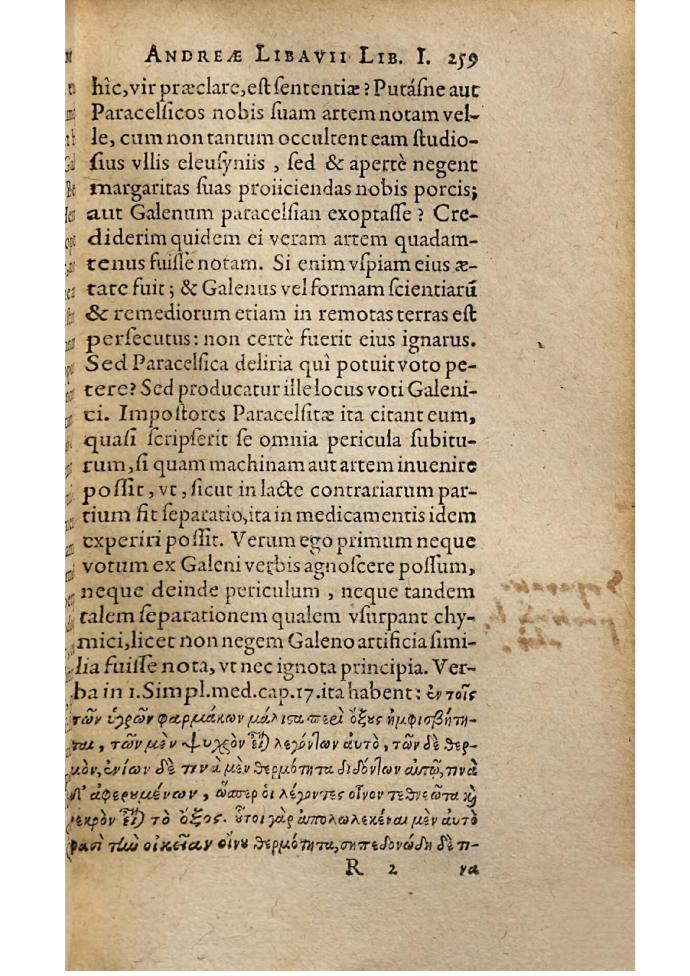 ANDREÆ LIBAVII LIB. I. 259
hîc, vir præclare, est sententiæ? Putásne aut
Paracelsicos nobis suam artem notam vel-
le, cum non tantum occultent eam studio-
sius vllis eleusyniis, sed & apertè negent
margaritas suas proiiciendas nobis porcis;
aut Galenum paracelsian exoptasse? Cre-
diderim quidem ei veram artem quadam-
tenus fuisse notam. Si enim vspiam eius æ-
tate fuit; & Galenus vel formam scientiarū
& remediorum etiam in remotas terras est
persecutus: non certè fuerit eius ignarus.
Sed Paracelsica deliria quî potuit voto pe-
tere? Sed producatur ille locus voti Galeni-
ci. Impostores Paracelsitæ ita citant eum,
quasi scripserit se omnia pericula subitu-
rum, si quam machinam aut artem inuenire
possit, vt, sicut in lacte contrariarum par-
tium fit separatio, ita in medicamentis idem
experiri possit. Verum ego primum neque
votum ex Galeni verbis agnoscere possum,
neque deinde periculum, neque tandem
talem separationem qualem vsurpant chy-
mici, licet non negem Galeno artificia simi-
lia fuisse nota, vt nec ignota principia. Ver-
ba in 1. Simpl. med. cap. 17. ita habent: ἐν τοῖς
τῶν ὑγρῶν φαρμάκων μάλιστα περὶ ὄξους ἠμφισβήτη-
ται, τῶν μὲν ψυχρὸν εἶ) λεγόντων αὐτὸ, τῶν δὲ θερ-
μὸν, ἐνίων δὲ τινὰ μὲν θερμότητα διδόντων αὐτῷ, τινὰ
δ' ἀφερυμένων, ὥσπερ οἱ λέγοντες οἶνον τεθνεῶτα κὶ
νεκρὸν εἶ) τὸ ὄξος. οὗτοι γὰρ ἀπολωλεκέναι μὲν αὐτό
φασὶ τὴν οἰκείαν οἴνου θερμότητα, σηπεδονώδη δὲ τι-
R 2 να